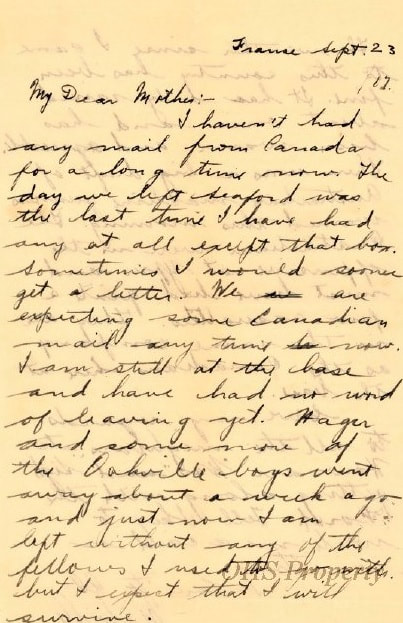 Franse Sept. 23
/17.
My Dear Mother:-
I haven't had
any mail from Canada
for a long time now. The
day we left Seaford was
the last time I have had
any at all except that box.
Sometimes I would sooner
get a letter. We are
expecting some Canadian
mail any time now.
I am still at the base
and have had no word
of leaving yet. Hager
and some more of
the Oakville boys went
away about a week ago
and just now I am
left without any of the
fellows I used to with.
but I expect that I will
survive.
OHS Property